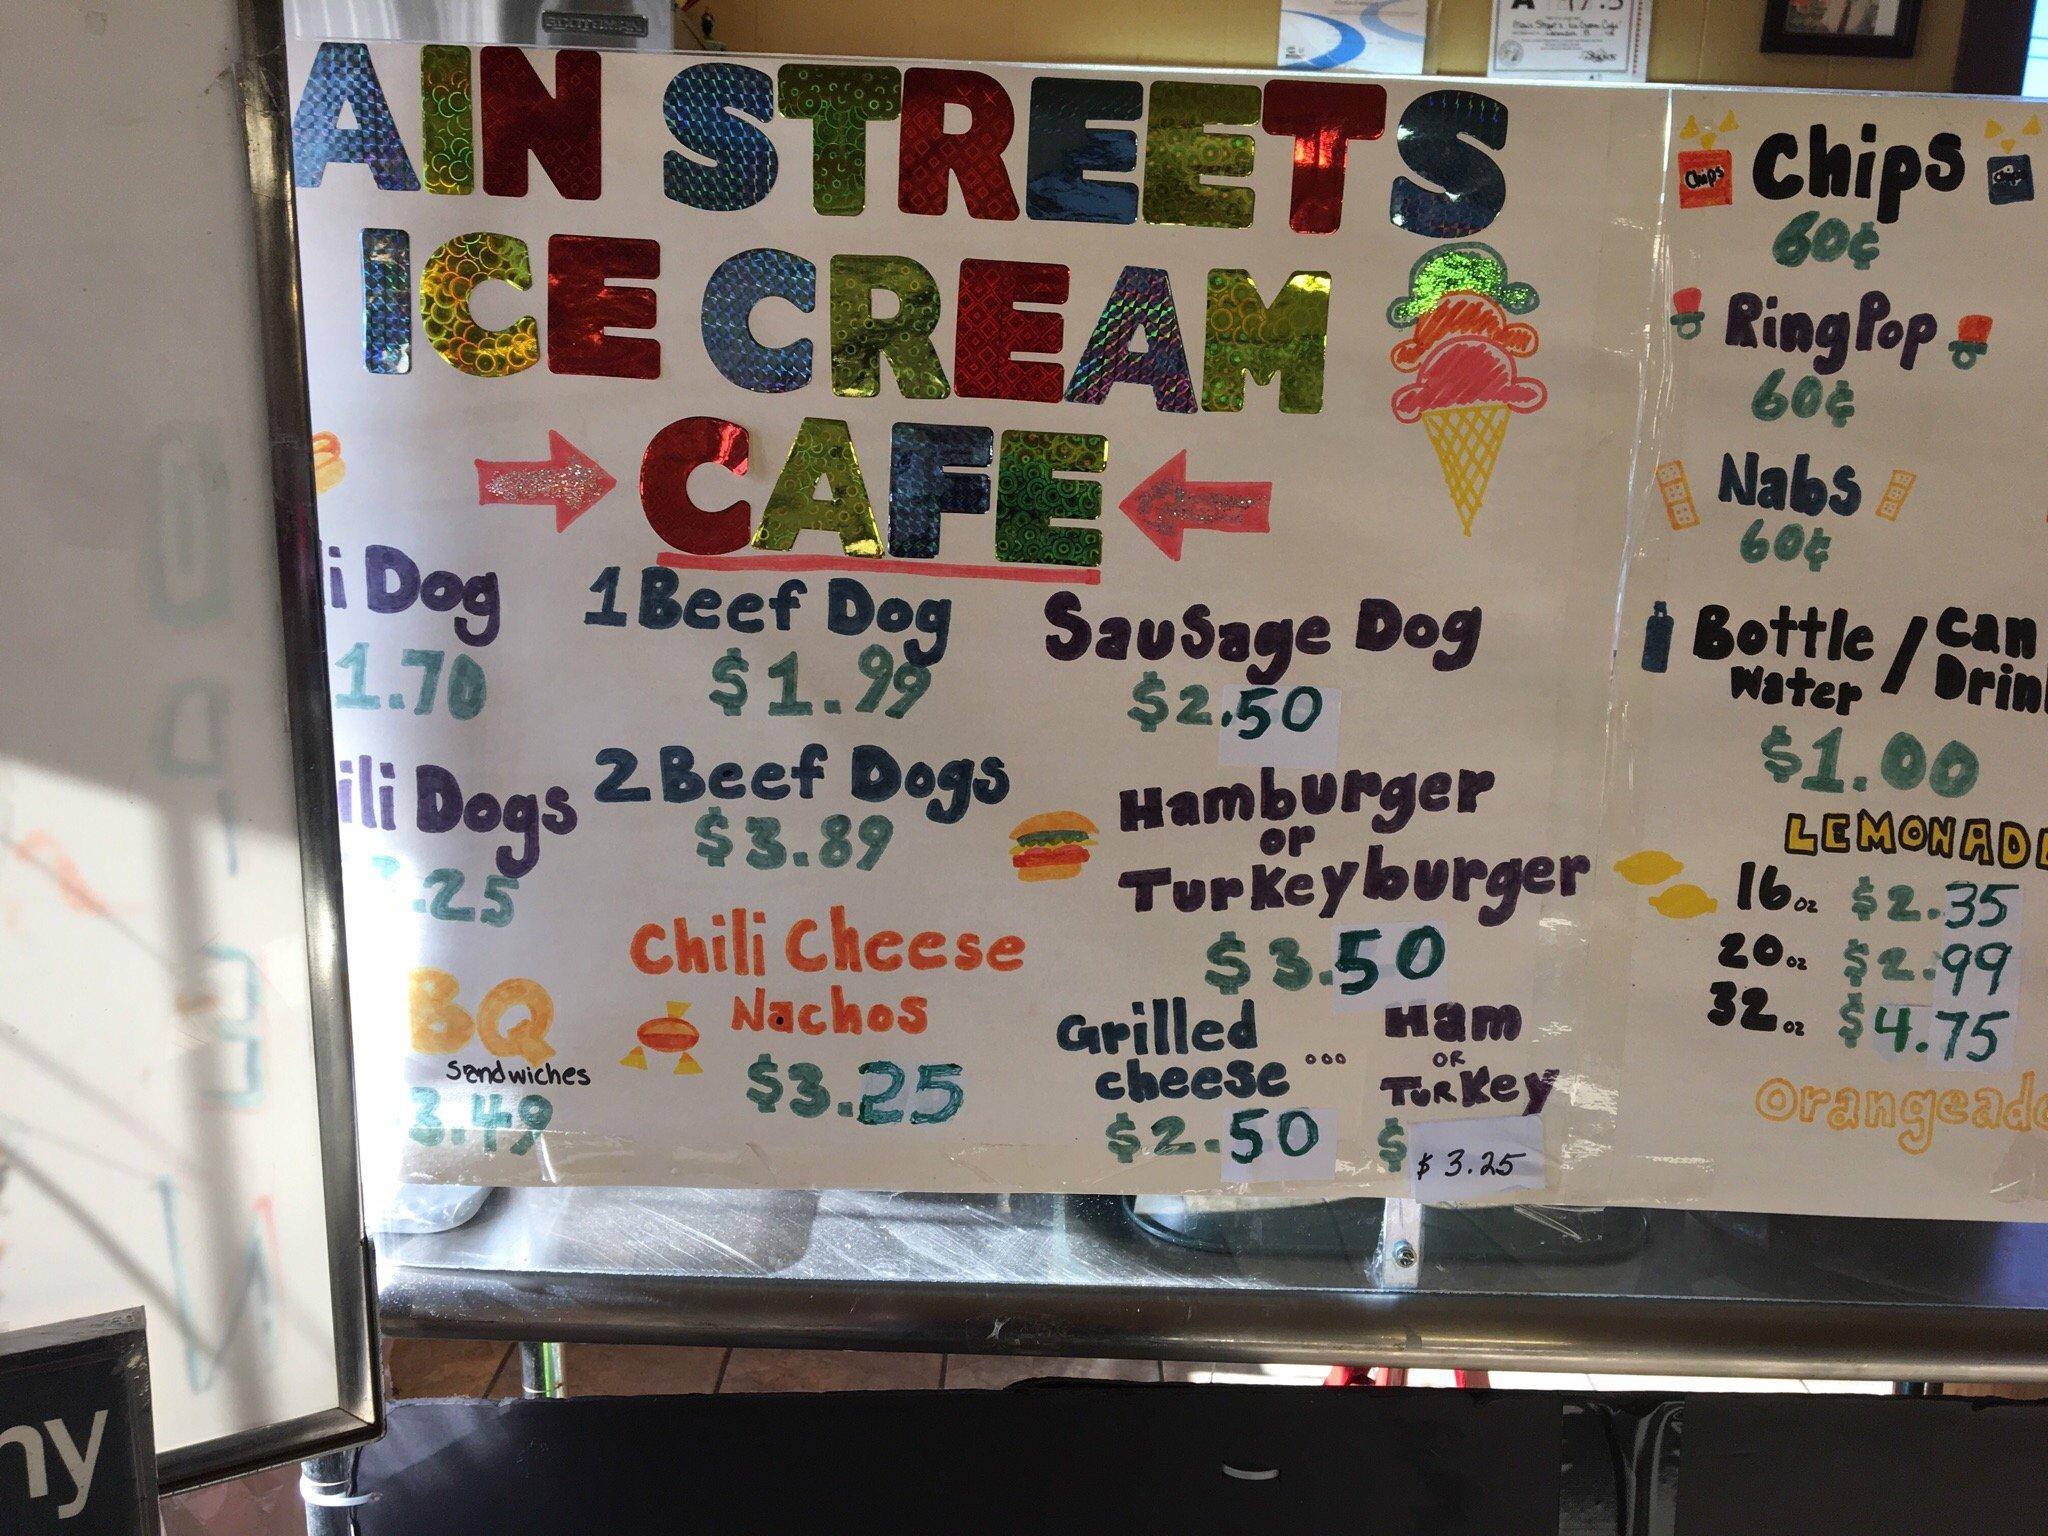 SCOTSMAN
A 97.5
AIN STREETS
ICE CREAM
CAFE
i Dog
1.70
ili Dogs
.25
BQ
Sandwiches
3.49
1 Beef Dog
$1.99
2 Beef Dogs
$3.89
Chili Cheese
Nachos
$3.25
Sausage Dog
$2.50
Hamburger
or
Turkeyburger
$3.50
Grilled
cheese ...
$2.50
Ham
OR
Turkey
$
$3.25
Chips
Chips
60¢
Ring Pop
60¢
Nabs
60¢
Bottle / Can
Water Drin
$1.00
LEMONADE
16 oz $2.35
20 oz $2.99
32 oz $4.75
Orangeade
ny